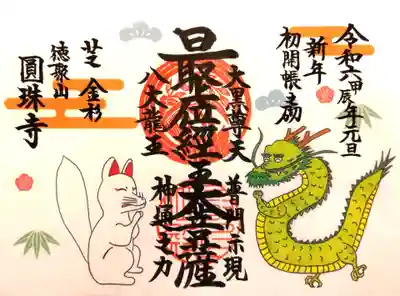 令和六甲辰年元旦
新年
初開帳
大黒尊天
普門示現
最上位經王大菩薩
八大龍王
神通之力
芝 金杉
徳聚山
圓珠寺